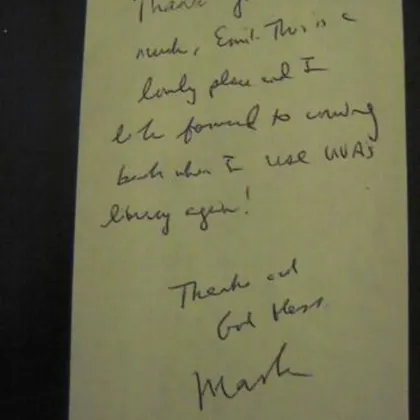 Thank you
much, Emil. This is a
lovely place and I
look forward to coming
back when I use UVA's
library again!
Thanks and
God bless.
Mark